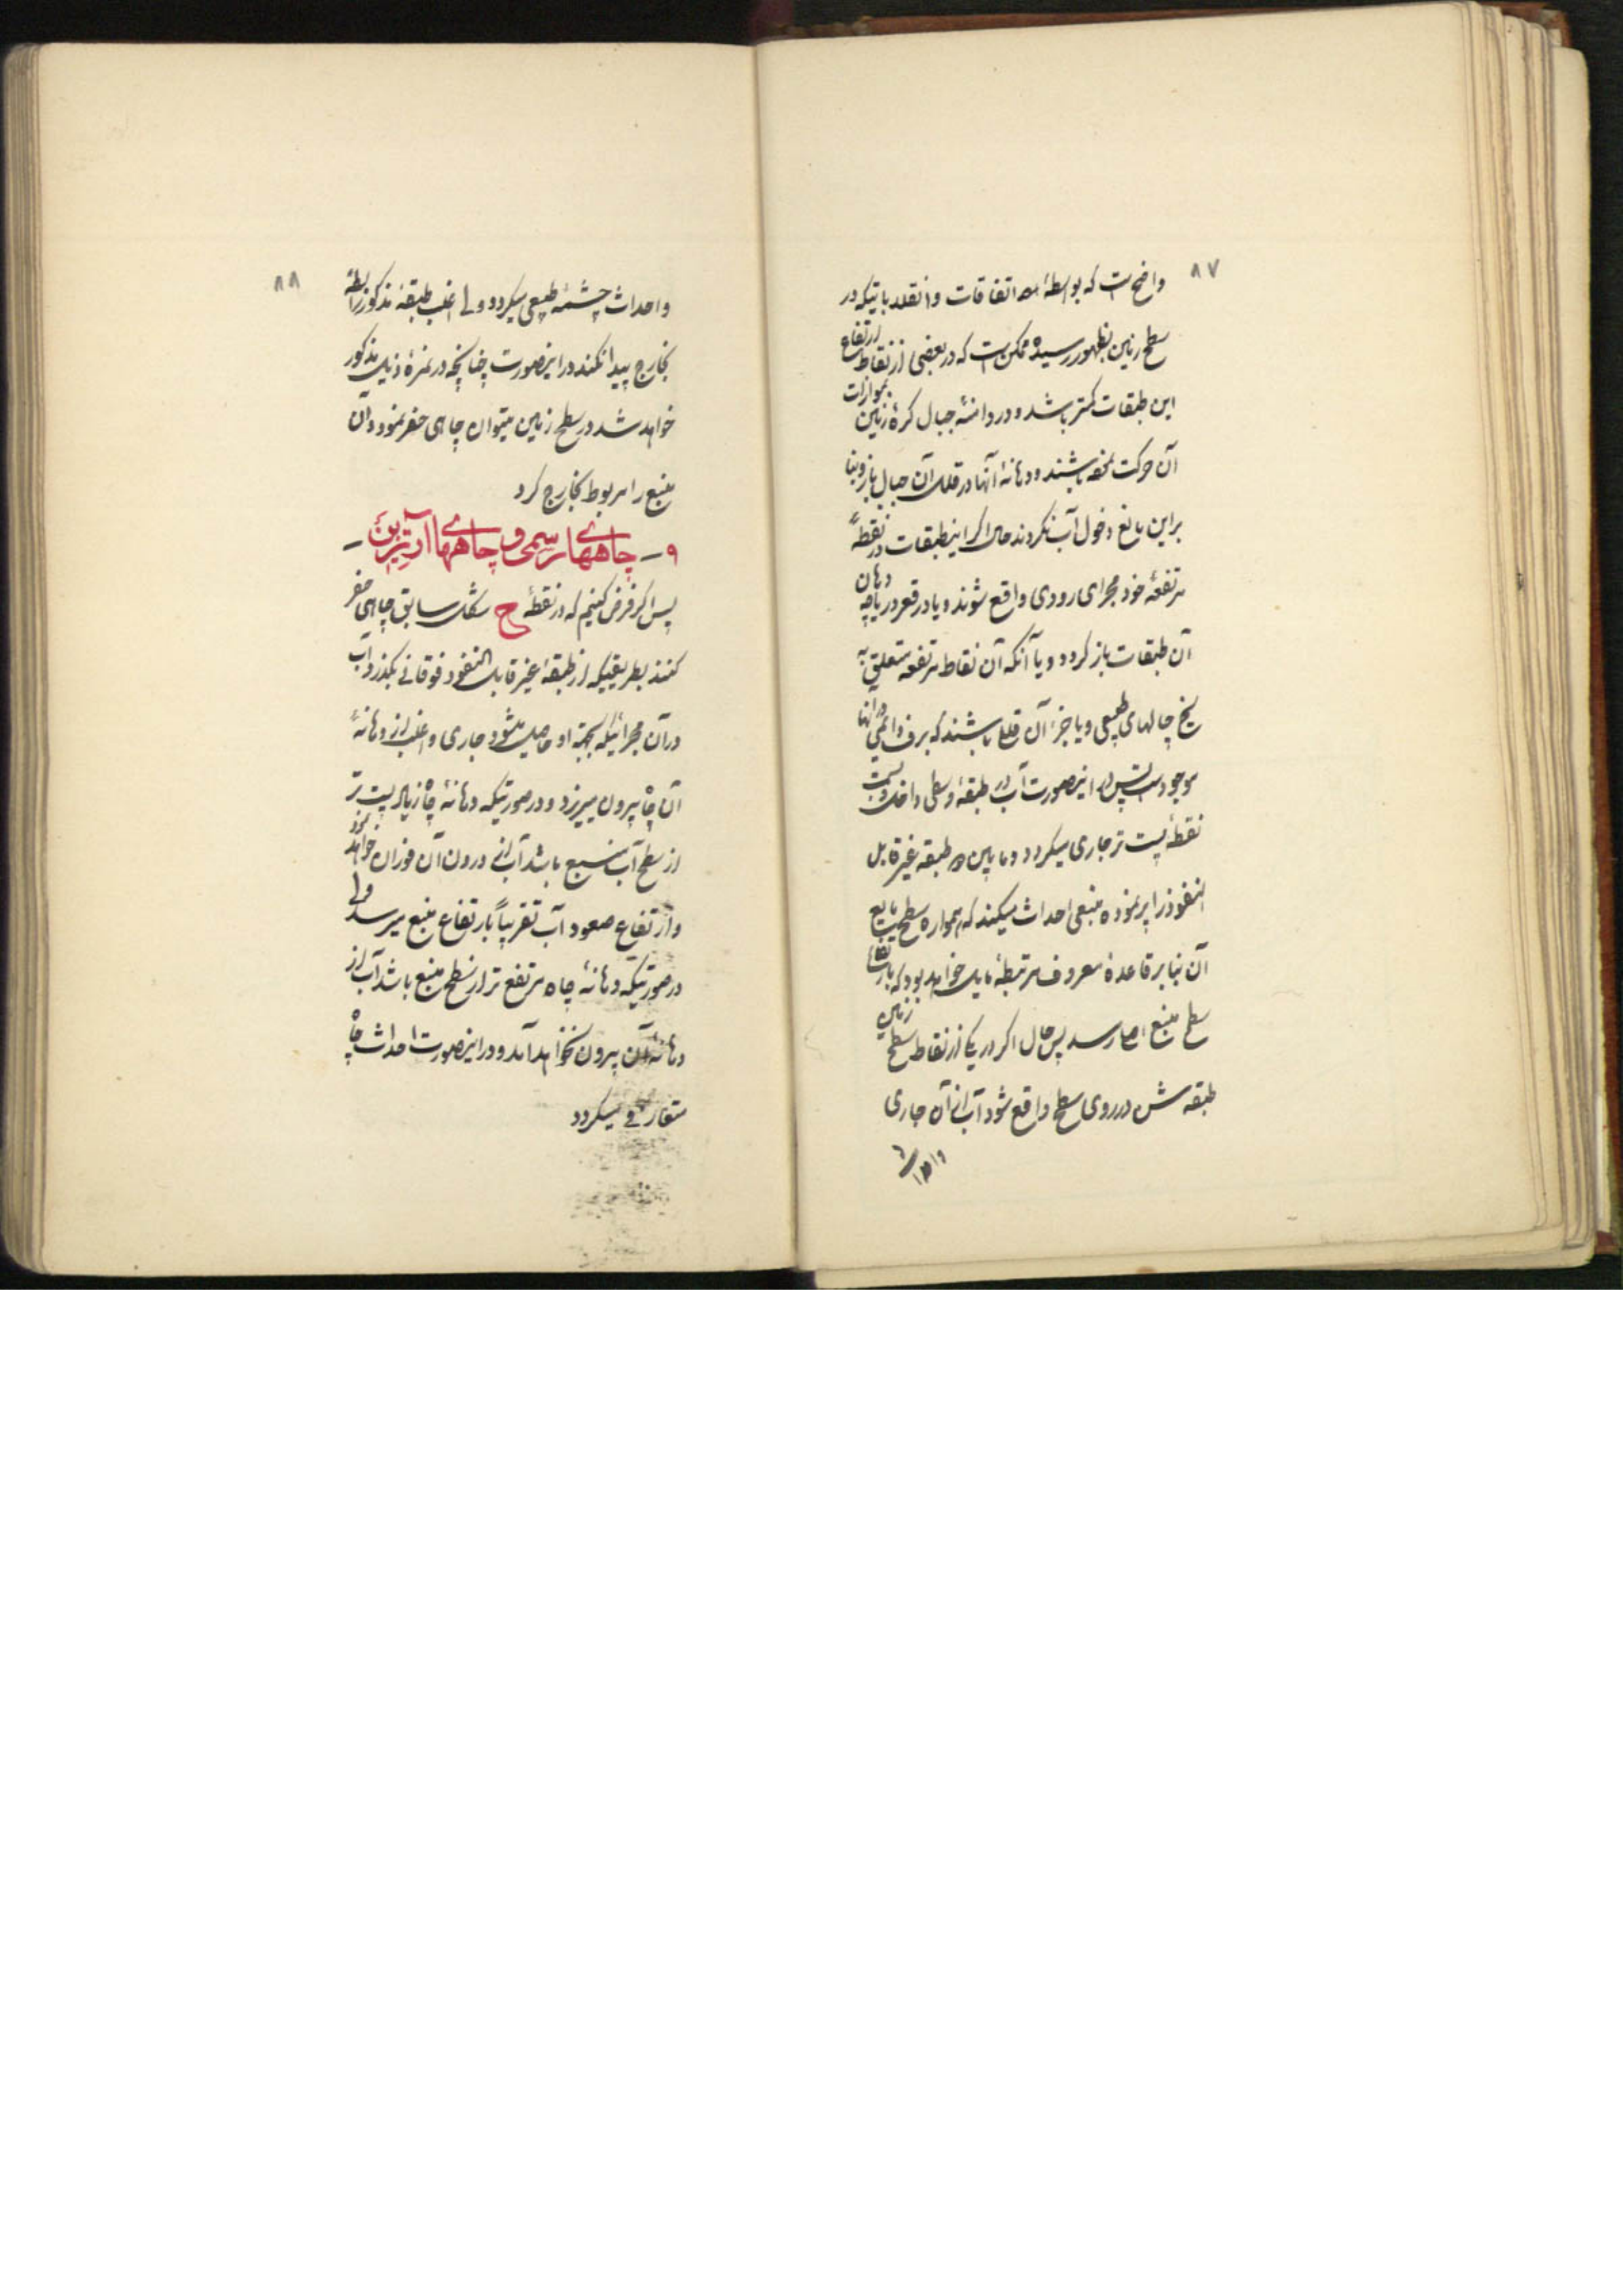 ۸۷
واضح است که بواسطهٔ اتفاقات و انقلاباتیکه در
سطح زمین بظهور رسیده ممکن است که در بعضی از نقاط ارتفاع
این طبقات کمتر باشد و در دامنهٔ جبال کرهٔ زمین بموازات
آن حرکت نموده باشند و دهانهٔ آنها در قلل آن جبال باز و بنا
براین مانع دخول آب نگردند حال اگر اینطبقات در نقطهٔ
مرتفعهٔ خود مجرای رودی واقع شوند و یا در قعر دریاچه دهان
آن طبقات باز گردد و یا آنکه آن نقاط مرتفعه متعلق به
یخ چالهای طبیعی و یا جزء آن قللی باشند که برف دائمی در آنها
موجود است پس در اینصورت آب در طبقهٔ وسطی داخل و بسمت
نقطهٔ پست تر جاری میگردد و مابین دو طبقه غیر قابل
النفوذ را پر نموده منبعی احداث میکند که همواره سطح مایع
آن بنا بر قاعدهٔ معروف مرتبطهٔ مایل خواهد بود که بارتفاع
سطح منبع برسد پس حال اگر در یکی از نقاط سطح زمین
طبقه ش در روی سطح واقع شود آب از آن جاری
۸۸
و احداث چشمهٔ طبیعی میگردد ولی اغلب طبقهٔ مذکور رابطهٔ
بخارج پیدا نکند در اینصورت چنانچه در نمرهٔ ذیل مذکور
خواهد شد در سطح زمین میتوان چاهی حفر نمود و آن
منبع را مربوط بخارج کرد
۹ – چاههای رسمی و چاههای آرتزین –
پس اگر فرض کنیم که در نقطهٔ ح شکل سابق چاهی حفر
کنند بطریقیکه از طبقهٔ غیر قابل النفوذ فوقانی بگذرد آب
در آن مجرائیکه بجهة او حاصل میشود جاری و اغلب از دهانهٔ
آن چاه بیرون میریزد و در صورتیکه دهانهٔ چاه زیاد پست تر
از سطح آب منبع باشد آب از درون آن فوران خواهد نمود
و ارتفاع صعود آب تقریباً بارتفاع منبع میرسد ولی
در صورتیکه دهانهٔ چاه مرتفع تر از سطح منبع باشد آب از
دهانهٔ آن بیرون نخواهد آمد و در اینصورت احداث چاه
متعارفی میگردد